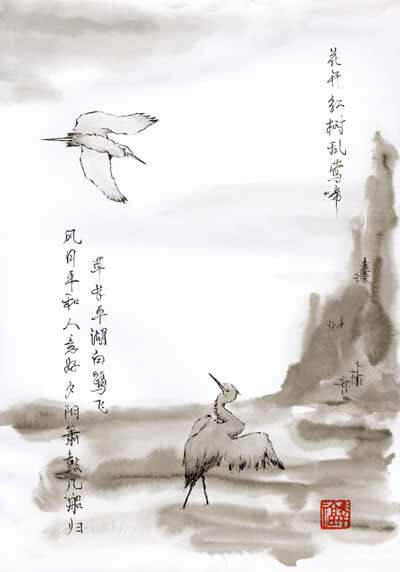 花开红树乱莺啼
草长平湖白鹭飞
风日平和人意好夕阳箫鼓几船归